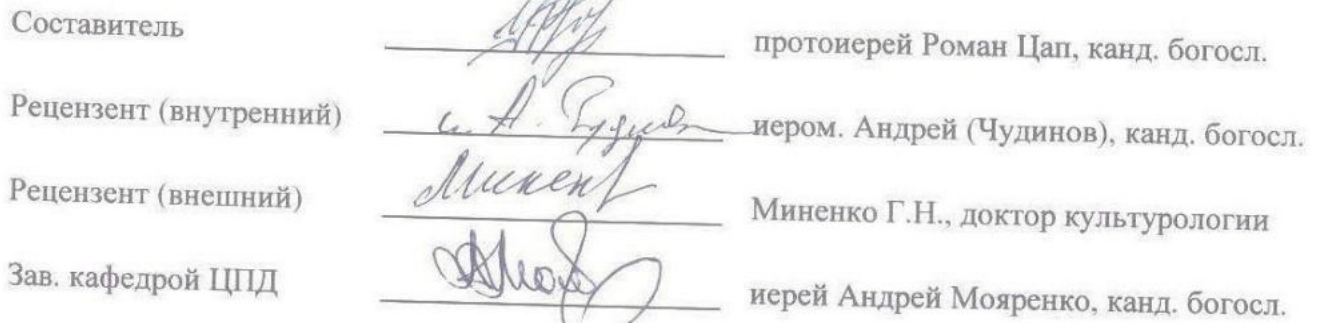 Составитель протоиерей Роман Цап, канд. богосл.
Рецензент (внутренний) и. А. Чудинов иером. Андрей (Чудинов), канд. богосл.
Рецензент (внешний) Миненко Г.Н., доктор культурологии
Зав. кафедрой ЦПД иерей Андрей Мояренко, канд. богосл.